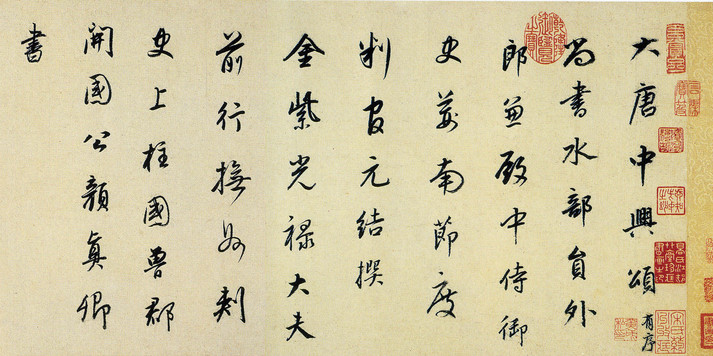 大唐中興頌 有序
尚書水部員外
郎兼殿中侍御
史荊南節度
判官元結撰
金紫光禄大夫
前行撫州刺
史上柱國魯郡
開國公顏真卿
書